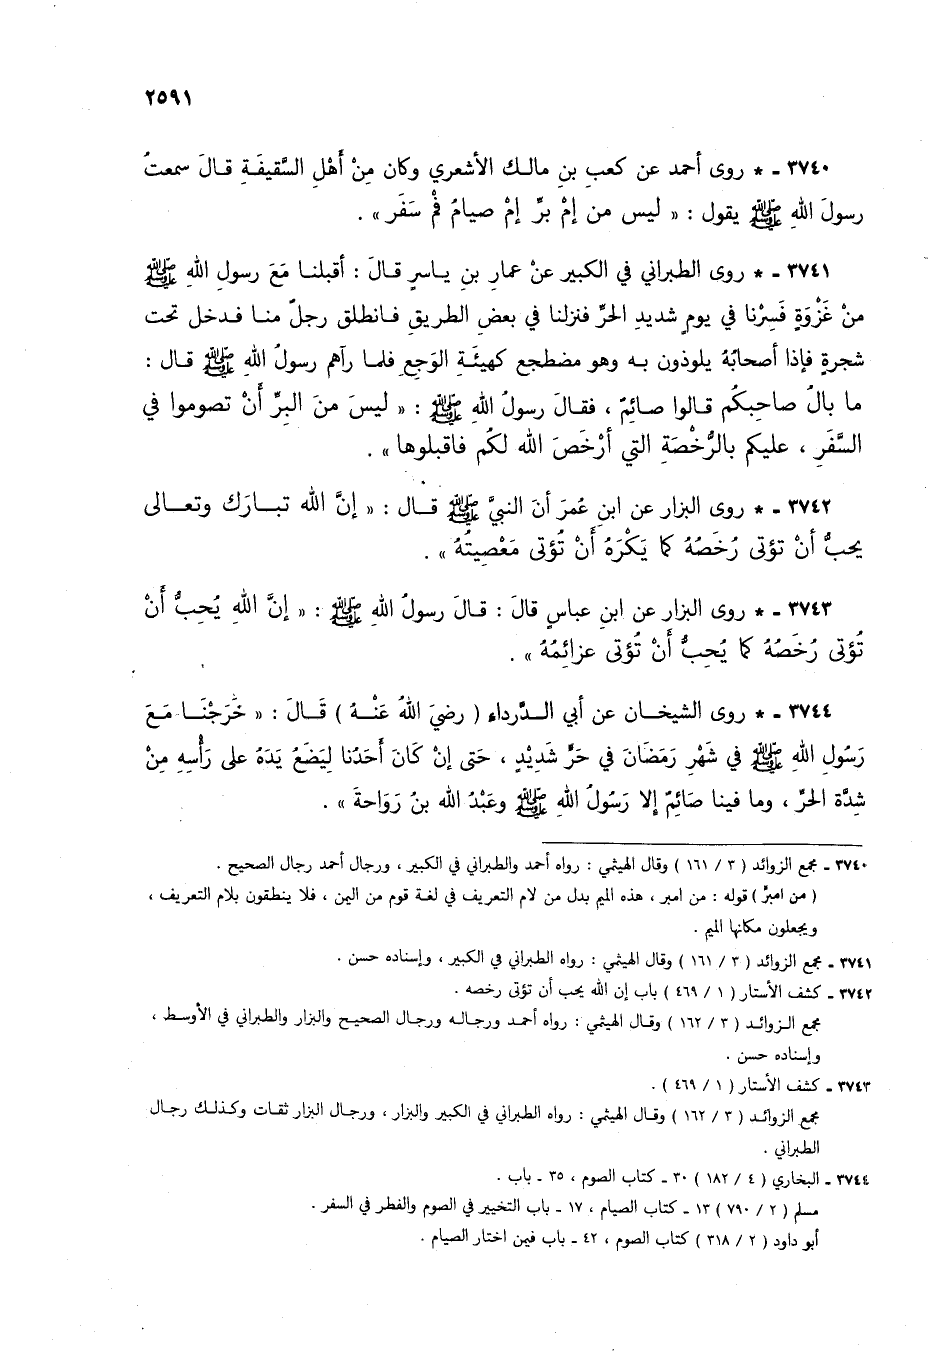 ٢٥٩١
٣٧٤٠ ـ * روى أحمد عن كعبِ بنِ مالك الأشعري وكان مِنْ أَهْلِ السَّقيفَةِ قالَ سمعتُ
رسولَ اللهِ ﷺ يقول : « ليس من إمْ بِرٍّ إمْ صيامُ فمْ سَفَر » .
٣٧٤١ ـ * روى الطبراني في الكبير عنْ عمارِ بنِ ياسرٍ قالَ : أقبلنا مَعَ رسولِ اللهِ ﷺ
منْ غَزْوَةٍ فَسِرْنا في يومٍ شديدِ الحرِّ فنزلنا في بعضِ الطريقِ فانطلق رجلٌ منا فدخل تحت
شجرةٍ فإذا أصحابُهُ يلوذون به وهو مضطجع كهيئَةِ الوَجعِ فلما رآهم رسولُ اللهِ ﷺ قال :
ما بالُ صاحبِكُم قالوا صائِمٌ ، فقالَ رسولُ اللهِ ﷺ : « ليسَ منَ البِرِّ أنْ تصوموا في
السَّفَرِ ، عليكم بالرُّخْصَةِ التي أرْخَصَ الله لكُم فاقبلوها » .
٣٧٤٢ ـ * روى البزار عن ابنِ عُمرَ أنَ النبيَّ ﷺ قال : « إنَّ الله تبارَك وتعالى
يحبُّ أنْ تؤتى رُخَصُهُ كما يَكْرَهُ أَنْ تُؤتى مَعْصِيتُهُ » .
٣٧٤٣ ـ * روى البزار عن ابنِ عباسٍ قالَ : قالَ رسولُ اللهِ ﷺ : « إنَّ اللهِ يُحِبُّ أَنْ
تُؤتى رُخَصُهُ كما يُحِبُّ أَنْ تُؤتى عزائِمُهُ » .
٣٧٤٤ ـ * روى الشيخان عن أبي الدَّرداء ( رضيَ اللهُ عَنْهُ ) قَالَ : « خَرَجْنَا مَعَ
رَسُولِ اللهِ ﷺ في شَهْرِ رَمَضَانَ في حَرٍّ شَدِيْدٍ ، حَتى إنْ كَانَ أَحَدُنا لِيَضَعُ يَدَهُ على رَأْسِهِ مِنْ
شِدَّة الحَرِّ ، وما فينا صَائِمٌ إلا رَسُولُ اللهِ ﷺ وعَبْدُ الله بنُ رَوَاحةَ » .
٣٧٤٠ ـ مجمع الزوائد ( ٣ / ١٦١ ) وقال الهيثمي : رواه أحمد والطبراني في الكبير ، ورجال أحمد رجال الصحيح .
( من امبرٍّ ) قوله : من امبر ، هذه الميم بدل من لام التعريف في لغة قوم من اليمن ، فلا ينطقون بلام التعريف ،
ويجعلون مكانها الميم .
٣٧٤١ ـ مجمع الزوائد ( ٣ / ١٦١ ) وقال الهيثمي : رواه الطبراني في الكبير ، وإسناده حسن .
٣٧٤٢ ـ كشف الأستار ( ١ / ٤٦٩ ) باب إن الله يحب أن تؤتى رخصه .
مجمع الزوائد ( ٣ / ١٦٢ ) وقال الهيثمي : رواه أحمد ورجاله ورجال الصحيح والبزار والطبراني في الأوسط ،
وإسناده حسن .
٣٧٤٣ ـ كشف الأستار ( ١ / ٤٦٩ ) .
مجمع الزوائد ( ٣ / ١٦٢ ) وقال الهيثمي : رواه الطبراني في الكبير والبزار ، ورجال البزار ثقات وكذلك رجال
الطبراني .
٣٧٤٤ ـ البخاري ( ٤ / ١٨٢ ) ٣٠ ـ كتاب الصوم ، ٣٥ ـ باب .
مسلم ( ٢ / ٧٩٠ ) ١٣ ـ كتاب الصيام ، ١٧ ـ باب التخيير في الصوم والفطر في السفر .
أبو داود ( ٢ / ٣١٨ ) كتاب الصوم ، ٤٢ ـ باب فيمن اختار الصيام .